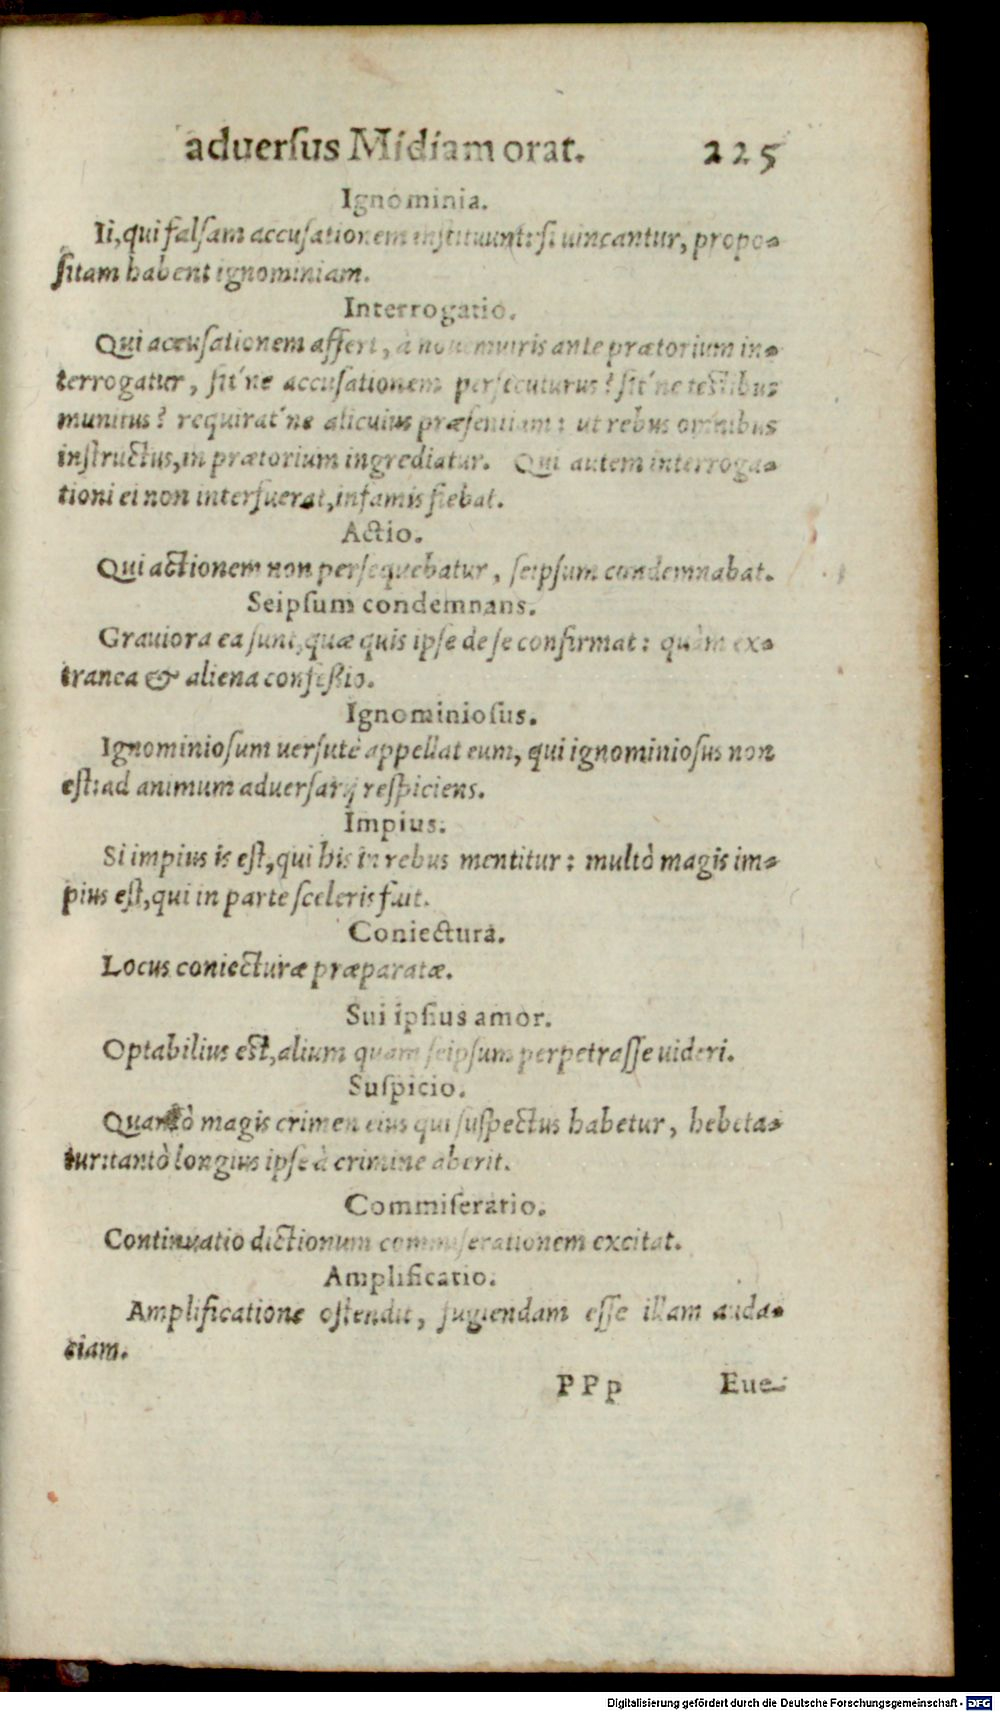 adverſus Midiam orat. 225
Ignominia.
Ii, qui falſam accuſationem inſtituunt: ſi uincantur, propo-
ſitam habent ignominiam.
Interrogatio.
Qui accuſationem affert, à nouemuiris ante prætorium in-
terrogatur, ſit'ne accuſationem perſecuturus? ſit'ne teſtibus
munitus? requirat'ne alicuius præſentiam: ut rebus omnibus
inſtructus, in prætorium ingrediatur. Qui autem interroga-
tioni ei non interfuerat, infamis fiebat.
Actio.
Qui actionem non perſequebatur, ſeipſum condemnabat.
Seipſum condemnans.
Grauiora ea ſunt, quæ quis ipſe de ſe confirmat: quàm ex-
tranea & aliena confeſsio.
Ignominioſus.
Ignominioſum uerſutè appellat eum, qui ignominioſus non
eſt: ad animum aduerſarij reſpiciens.
Impius.
Si impius is eſt, qui his in rebus mentitur: multò magis im-
pius eſt, qui in parte ſceleris fuit.
Coniectura.
Locus coniecturæ præparatæ.
Sui ipſius amor.
Optabilius eſt, alium quam ſeipſum perpetraſſe uideri.
Suſpicio.
Quantò magis crimen eius qui ſuſpectus habetur, hebeta-
tur: tantò longius ipſe à crimine aberit.
Commiſeratio.
Continuatio dictionum commiſerationem excitat.
Amplificatio.
Amplificatione oſtendit, fugiendam eſſe illam auda-
ciam.
PPp Eue-
Digitalisierung gefördert durch die Deutsche Forschungsgemeinschaft - DFG